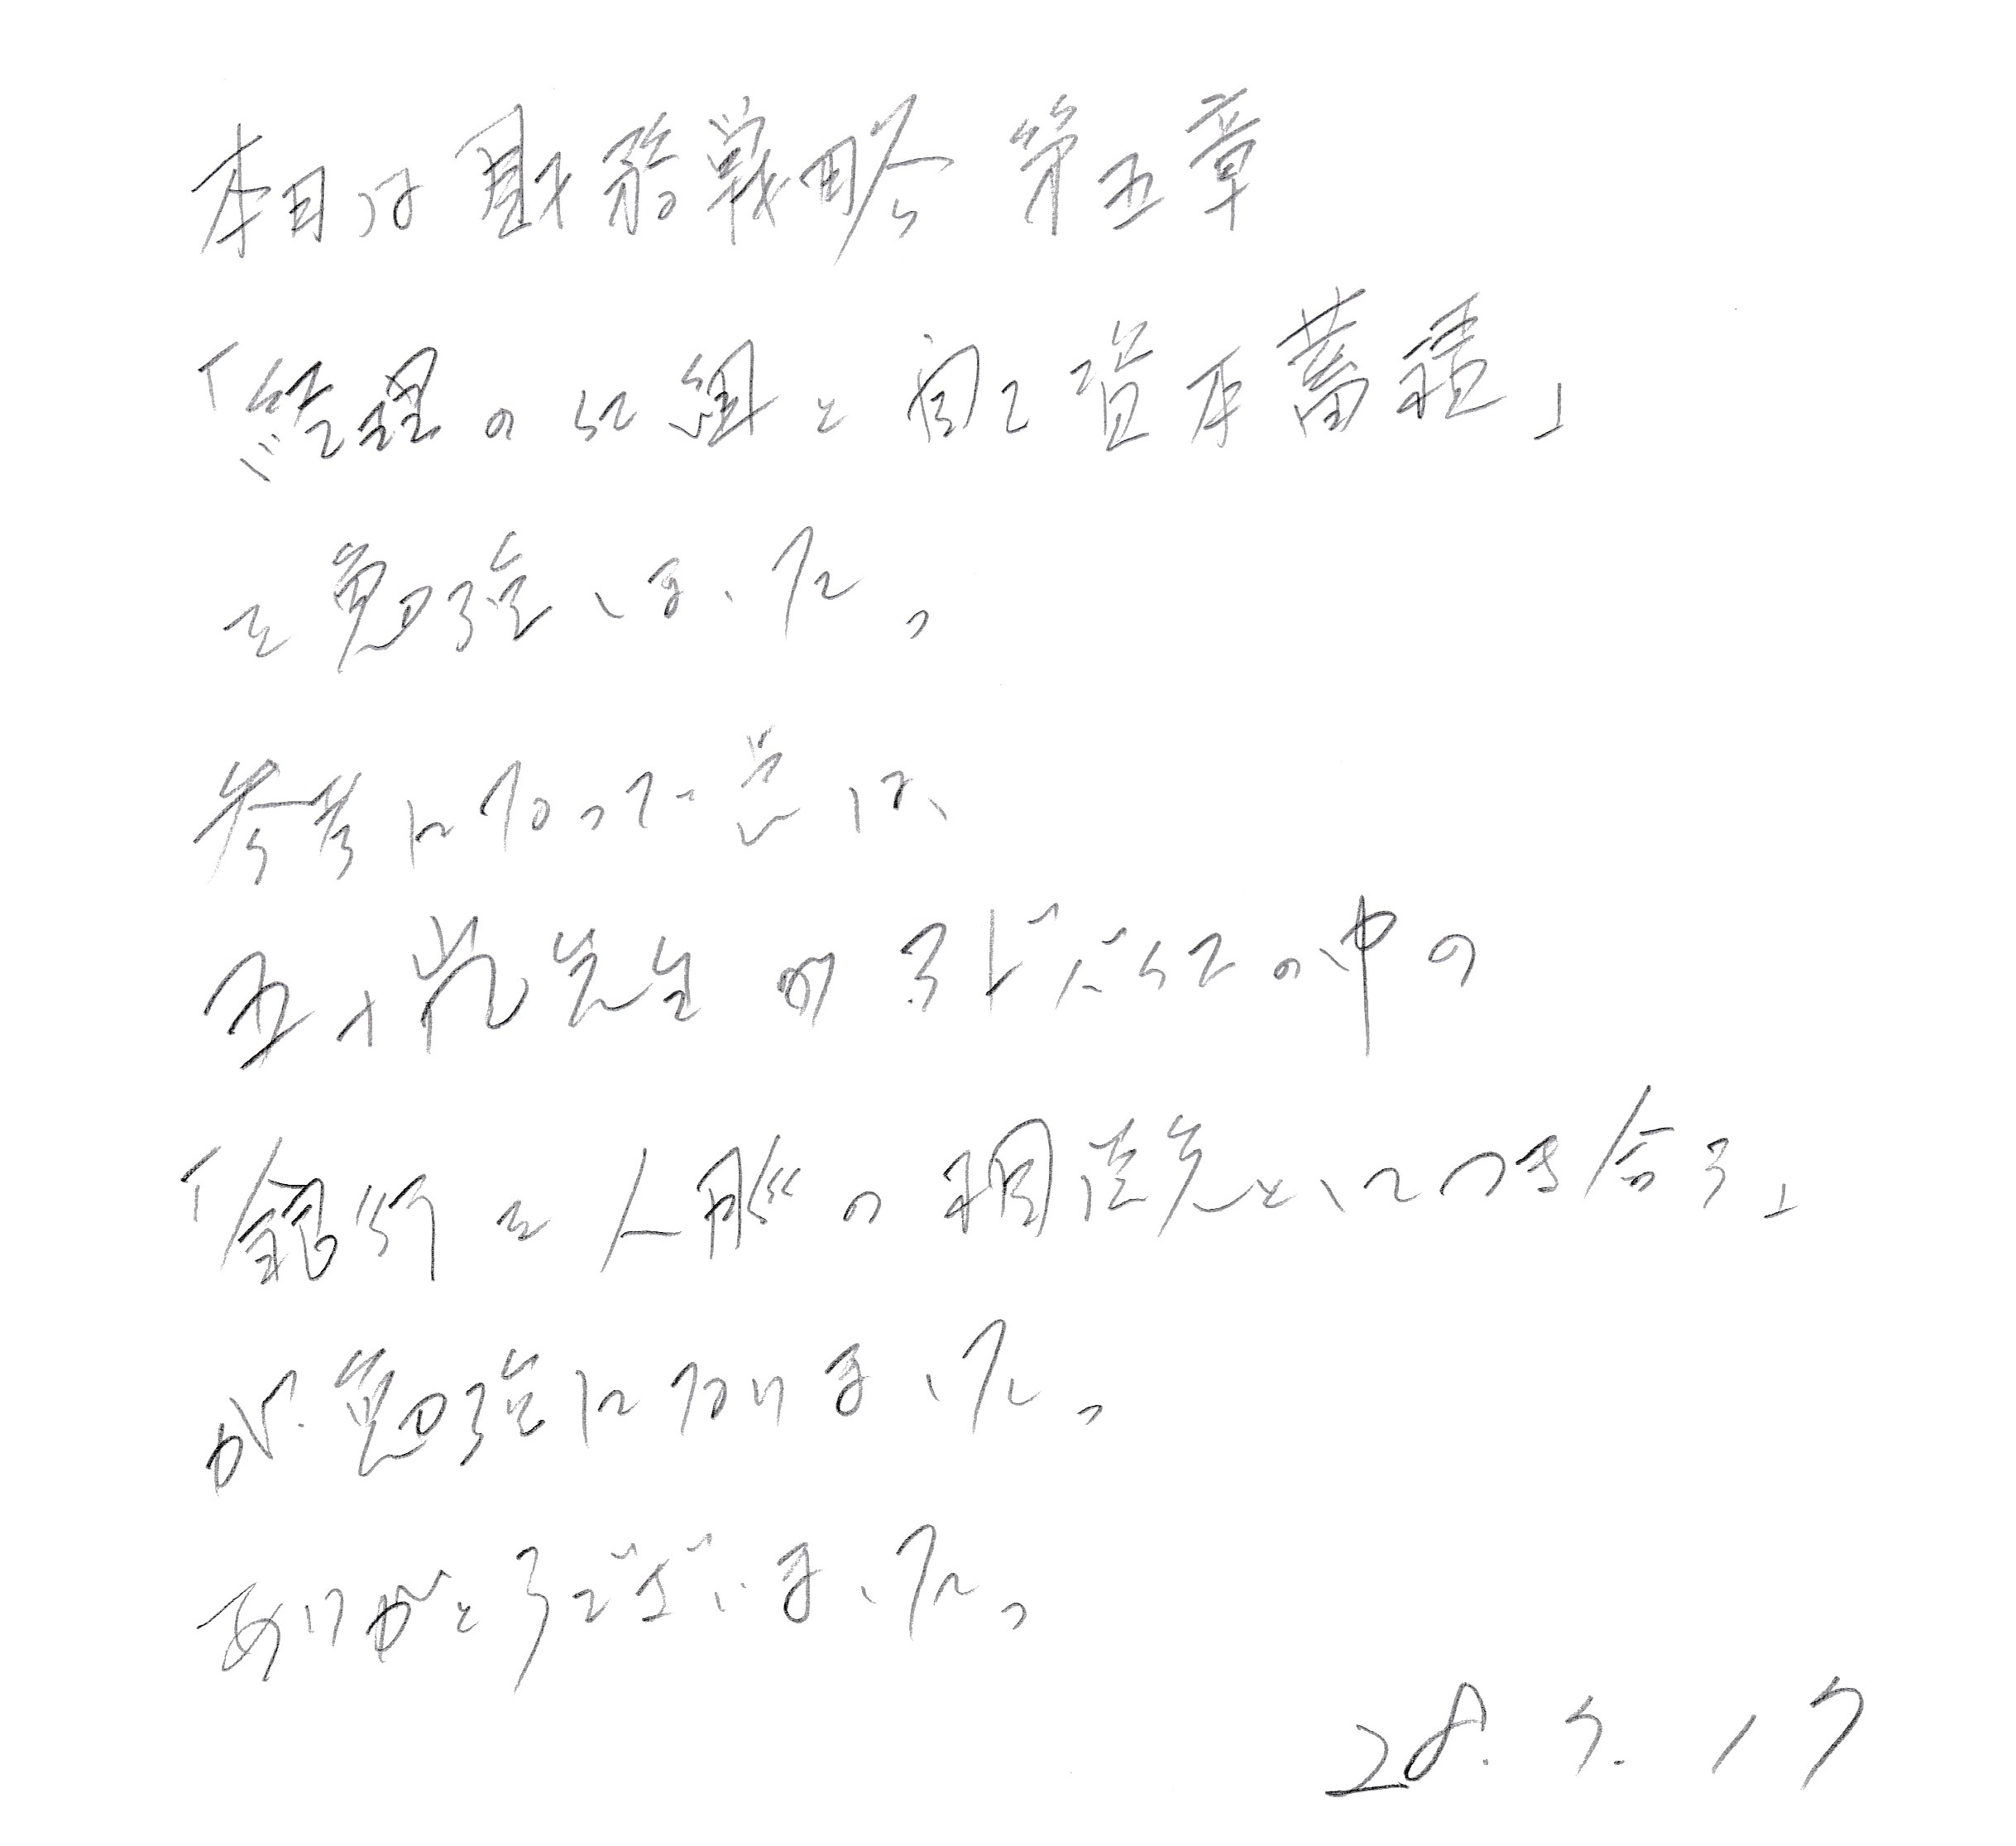 本日は財務戦略 第五章
「経理の仕組と自己資本蓄積」
を勉強しました。
参考になった点は、
五十嵐先生の  の中の
「銀行を人脈の調達先としてつき合う」
が勉強になりました。
ありがとうございました。
28. 7. 17